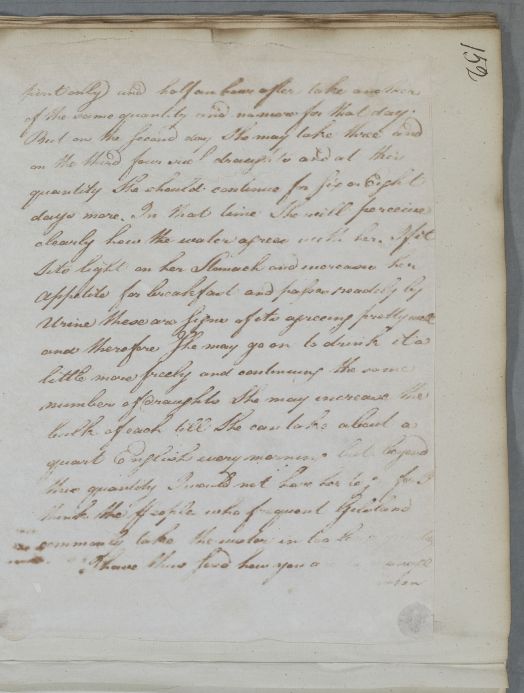 152
pint only and half an hour after take another
of the same quantity and no more for that day.
But on the second day She may take three and
on the third four such draughts and at this
quantity She should continue for six or Eight
days more. In that time She will perceive
clearly how the water agrees with her. If it
sits light on her Stomach and increases her
appetite for breakfast and passes readily by
Urine these are Signs of its agreeing pretty well
and therefore She may go on to drink it a
little more freely and continuing the same
number of draughts She may increase the
bulk of each till She can take about a
quart English every morning but beyond
this quantity I would not have her go for I
think the people who frequent
commonly take the water in too
I have thus said how you
when